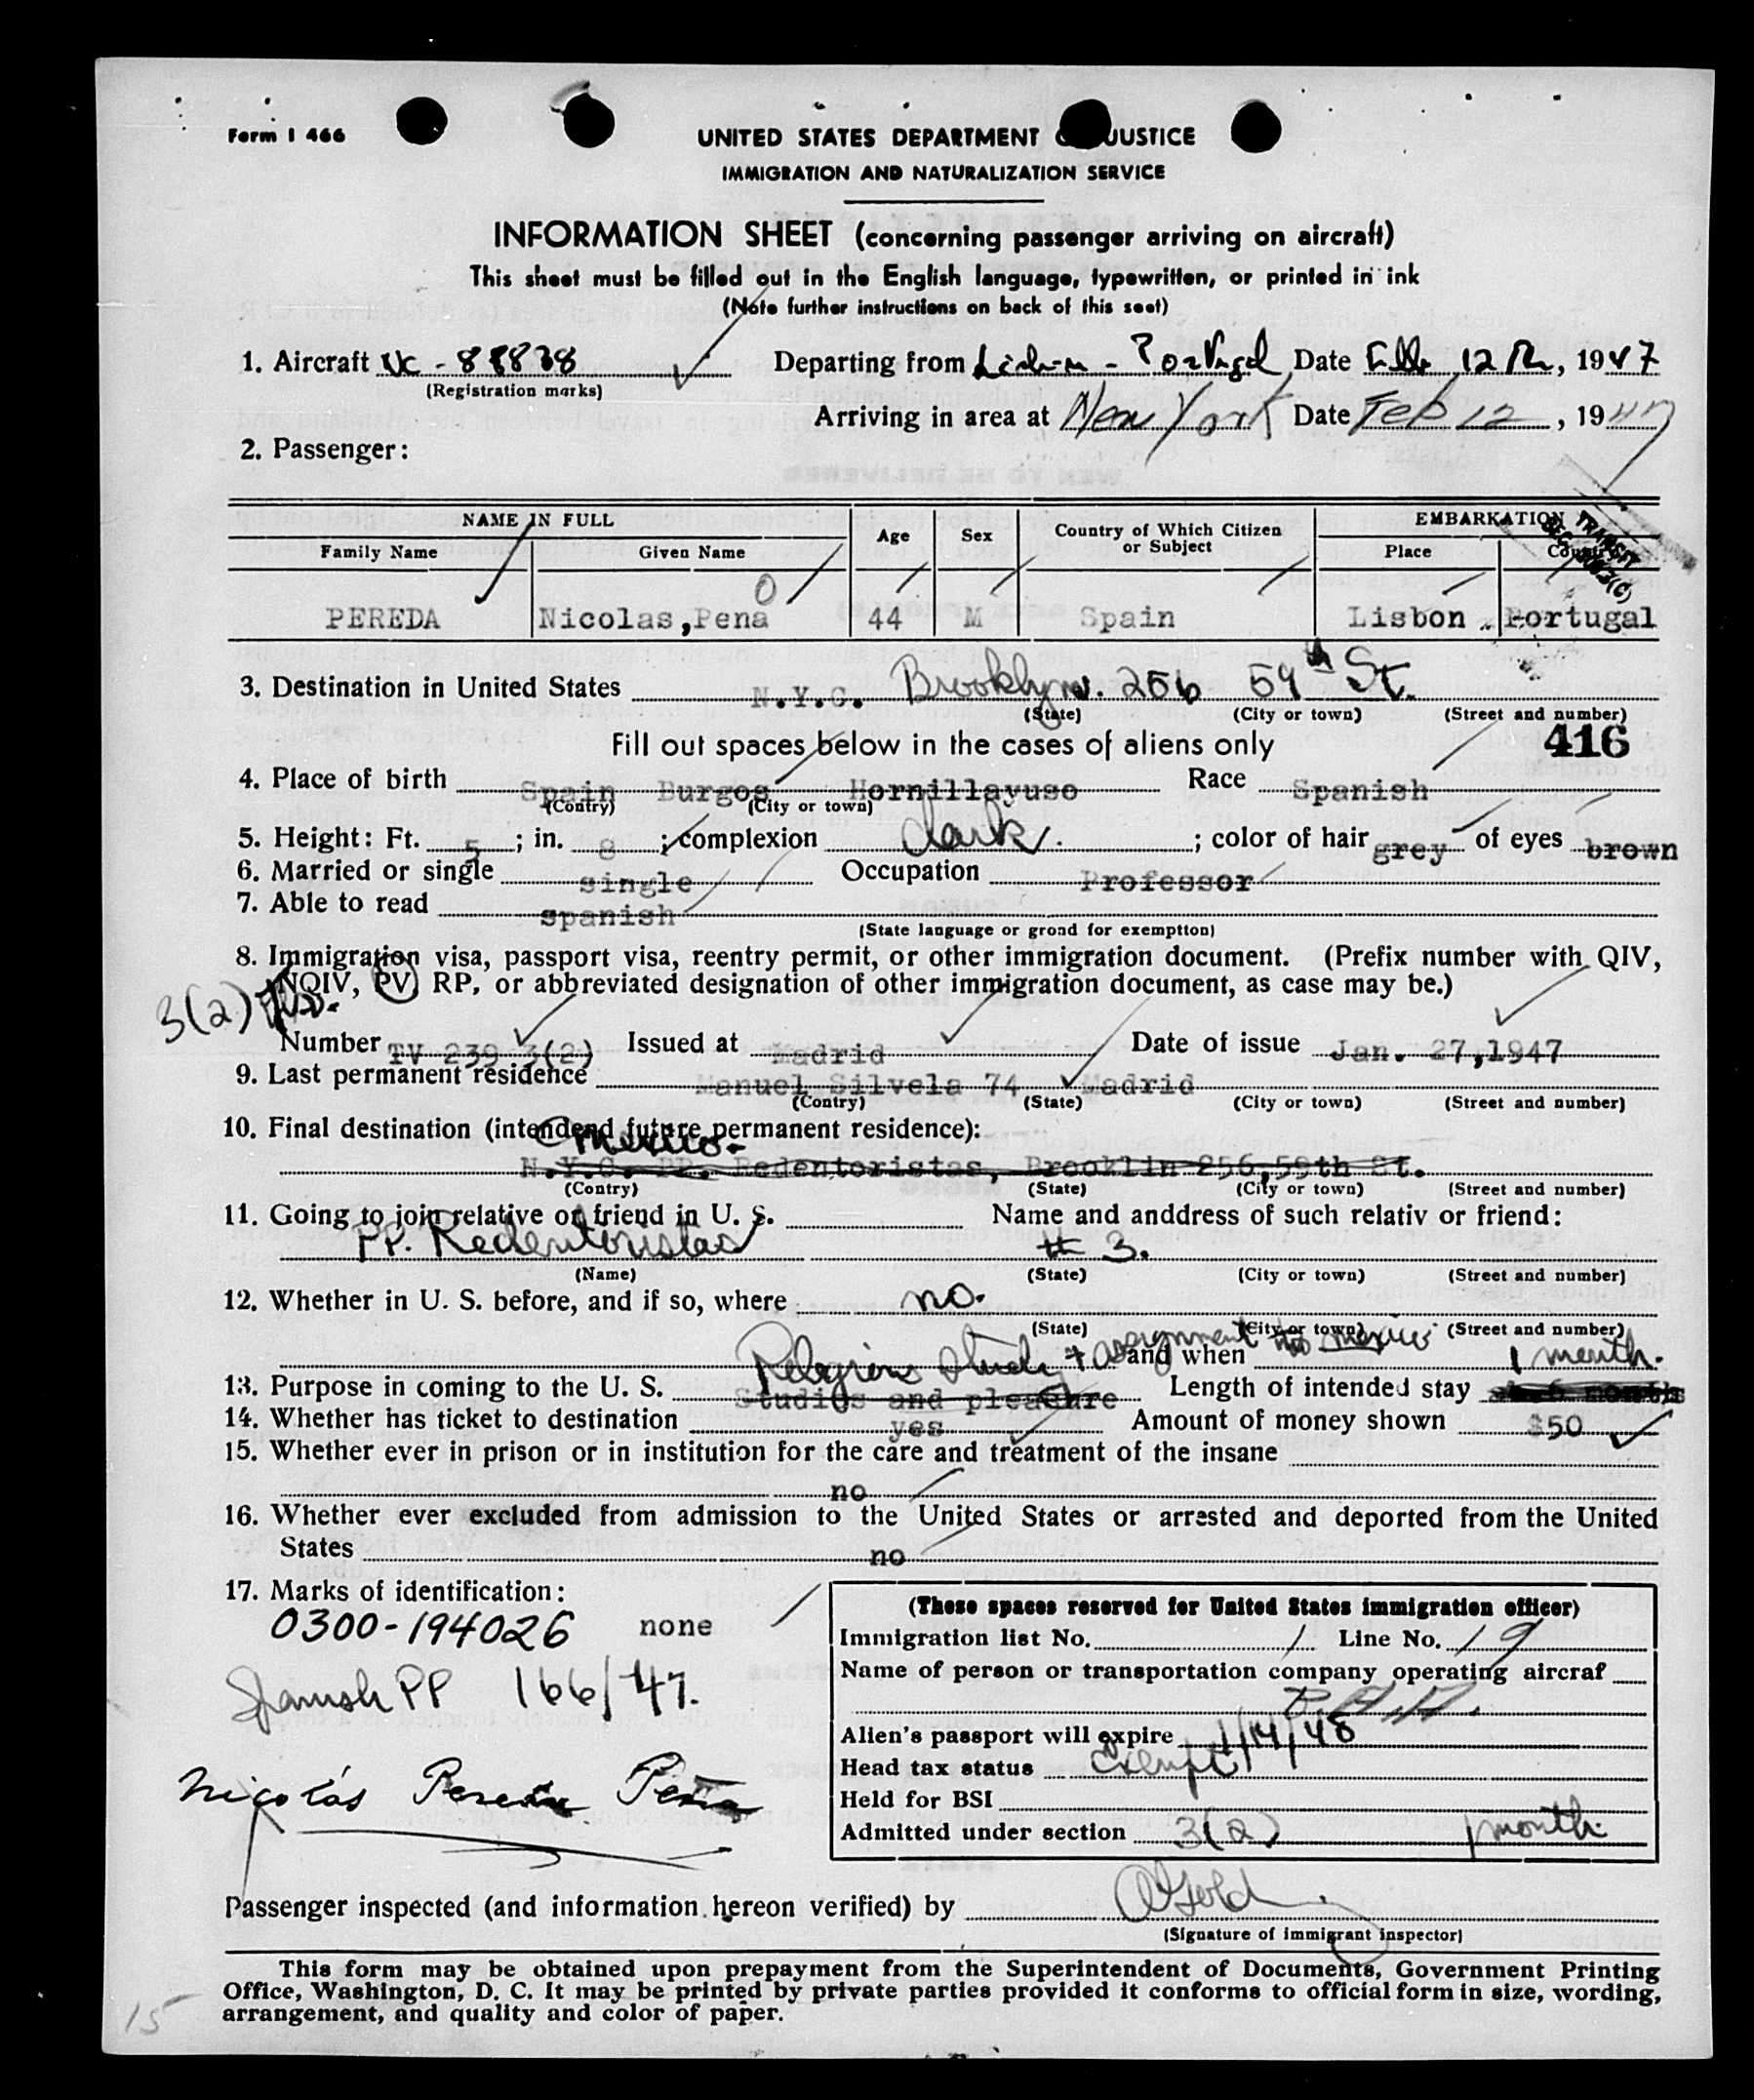 Form I 466
UNITED STATES DEPARTMENT O JUSTICE
IMMIGRATION AND NATURALIZATION SERVICE
INFORMATION SHEET (concerning passenger arriving on aircraft)
This sheet must be filled out in the English language, typewritten, or printed in ink
(Note further instructions on back of this seet)
1. Aircraft NC - 88838 Departing from Lisbon - Portugal Date 12 Th, 1947
(Registration marks)
Arriving in area at New York Date Feb 12, 1947
2. Passenger:
NAME IN FULL Age Sex Country of Which Citizen or Subject EMBARKATION
Family Name Given Name Place Country
TRANSIT
SEC. 3(c)
O
PEREDA Nicolas,Pena 44 M Spain Lisbon Portugal
3. Destination in United States N.Y.C. Brooklyn. 256 59th St.
(State) (City or town) (Street and number)
Fill out spaces below in the cases of aliens only 416
4. Place of birth Spain Burgos Hornillayuso Race Spanish
(Contry) (City or town)
5. Height: Ft. 5; in. 8; complexion dark; color of hair grey of eyes brown
6. Married or single single Occupation Professor
7. Able to read spanish
(State language or grond for exemptton)
8. Immigration visa, passport visa, reentry permit, or other immigration document. (Prefix number with QIV,
NQIV, PV, RP, or abbreviated designation of other immigration document, as case may be.)
3(2)
Number TV 239 3(2) Issued at Madrid Date of issue Jan. 27,1947
9. Last permanent residence Manuel Silvela 74 Madrid
(Contry) (State) (City or town) (Street and number)
10. Final destination (intendend future permanent residence):
Mexico-
N.Y.C. PP. Redentoristas, Brooklin 256,59th St.
(Contry) (State) (City or town) (Street and number)
11. Going to join relative or friend in U. S. Name and anddress of such relativ or friend:
PP. Redentoristas # 3.
(Name) (State) (City or town) (Street and number)
12. Whether in U. S. before, and if so, where no.
(State) (City or town) (Street and number)
Religious study + assignment to mexico and when 1 month.
13. Purpose in coming to the U. S. Studies and pleasure Length of intended stay 6 months
14. Whether has ticket to destination yes Amount of money shown $50
15. Whether ever in prison or in institution for the care and treatment of the insane
no
16. Whether ever excluded from admission to the United States or arrested and deported from the United
States no
17. Marks of identification:
0300-194026 none
Spanish PP 166/47.
Nicolás Pereda Peña
(These spaces reserved for United States immigration officer)
Immigration list No. 1 Line No. 19
Name of person or transportation company operating aircraf
P.A.A.
Alien's passport will expire 1/14/48
Head tax status exempt
Held for BSI
Admitted under section 3(2) 1 month
Passenger inspected (and information hereon verified) by
(Signature of immigrant inspector)
This form may be obtained upon prepayment from the Superintendent of Documents, Government Printing
Office, Washington, D. C. It may be printed by private parties provided it conforms to official form in size, wording,
arrangement, and quality and color of paper.
15